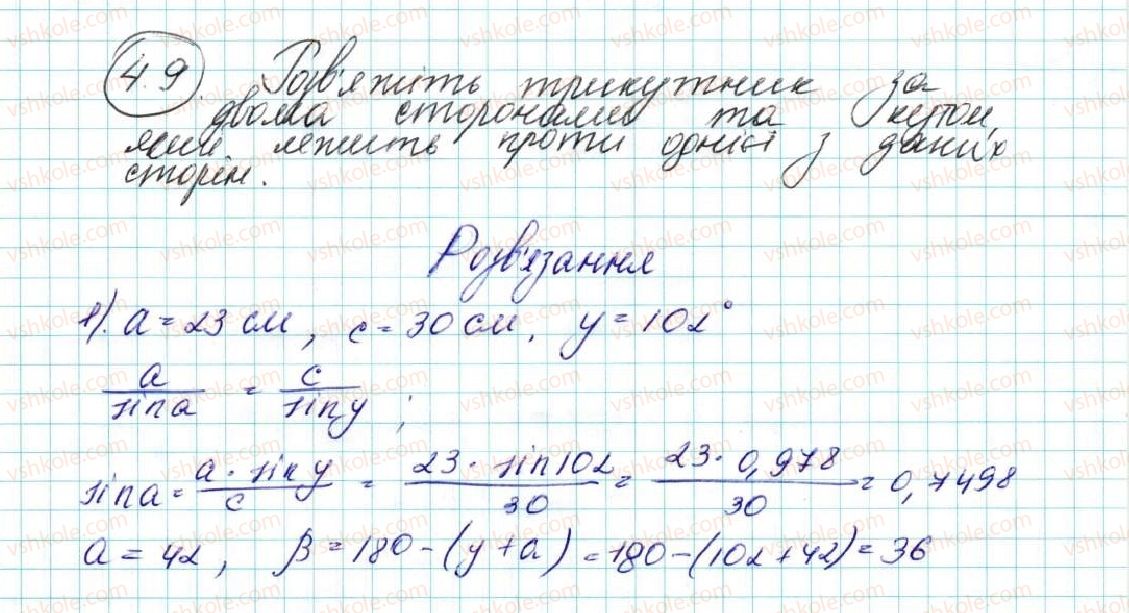 4.9. Розв'яжіть трикутник за
двома сторонами та кутом,
який лежить проти однієї з даних
сторін.
Розв'язання
1). a = 23 см, c = 30 см, γ = 102°
a/sin a = c/sin γ;
sin a = a · sin γ/c = 23 · sin 102/30 = 23 · 0,978/30 = 0,7498
a = 42, β = 180 - (γ + a) = 180 - (102 + 42) = 36
vshkole.com